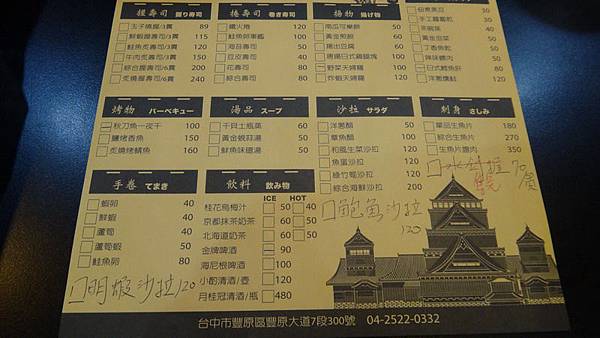 握壽司 握り寿司
玉子燒握/3貫 89
鮮蝦握壽司/3貫 115
鮭魚炙壽司/3貫 135
牛肉炙壽司/3貫 150
綜合握壽司/6貫 200
炙燒握壽司/6貫 240
捲壽司 巻き寿司
鐵火捲 120
鮭魚卵軍艦 100
海苔壽司 50
豆皮壽司 40
花壽司 80
綜合壽司 80
揚物 揚げ物
南瓜可樂餅 50
黃金煎餃 60
揚出豆腐 60
唐揚日式雞腿塊 100
野菜天婦羅 100
炸蝦天婦羅 120
30
手工蘿蔔乾 30
茶碗蒸 40
黃金泡菜 50
丁香魚乾 50
味噌黑輪 50
日式鱈魚肝 80
洋蔥燻鮭 120
烤物 バーベキュー
秋刀魚一夜干 100
鹽烤香魚 150
炙燒鯖魚 160
湯品 スープ
干貝土瓶蒸 60
黃金蜆蒜湯 50
鮮魚味噌湯 50
沙拉 サラダ
洋蔥醋 50
章魚醋 100
和風生菜沙拉 100
魚蛋沙拉 120
綠竹筍沙拉 120
綜合海鮮沙拉 200
刺身 さしみ
單品生魚片 180
綜合生魚片 270
生魚片嗆肉 350
手卷 てまき
蝦卵 40
鮮蝦 40
蘆筍 40
蘆筍蝦 50
鮭魚卵 80
飲料 飲み物
ICE HOT
桂花烏梅汁 50 40
京都抹茶奶茶 60 50
北海道奶茶 60 50
金牌啤酒 90
海尼根啤酒 100
小酌清酒/壺 120
月桂冠清酒/瓶 480
明蝦沙拉120
鮑魚沙拉
120
台中市豐原區豐原大道7段300號 04-2522-0332